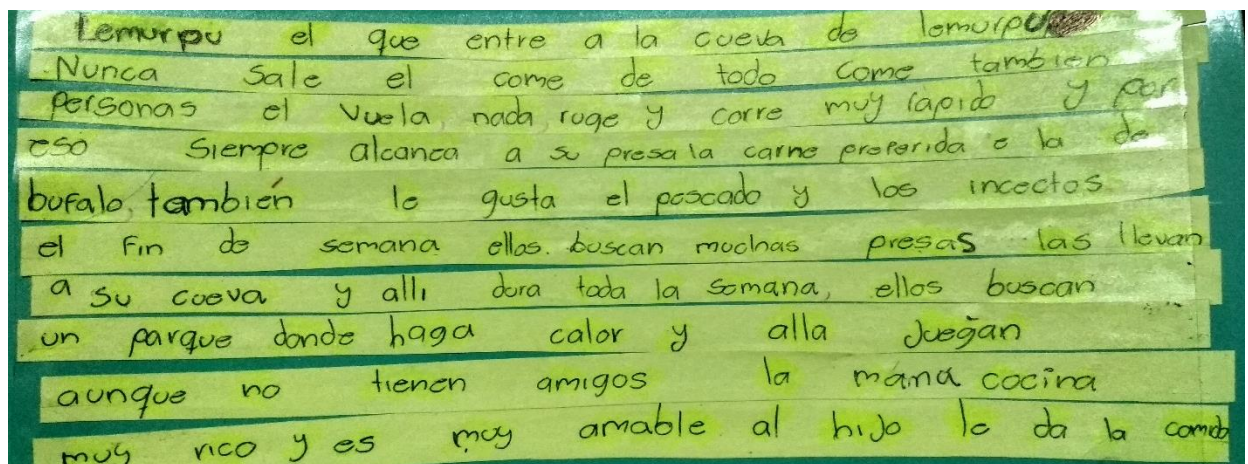 Lemurpu el que entre a la cueva de lemurpu
Nunca sale el come de todo come tambien
Personas el vuela, nada, ruge y corre muy rapido y por
eso siempre alcanca a su presa la carne preferida e la de
bufalo, también le gusta el pescado y los incectos
el fin de semana ellos. buscan muchas presas las llevan
a su cueva y alli dura toda la semana, ellos buscan
un parque donde haga calor y alla Juegan
aunque no tienen amigos la mana cocina
muy rico y es muy amable al hijo le da la comida